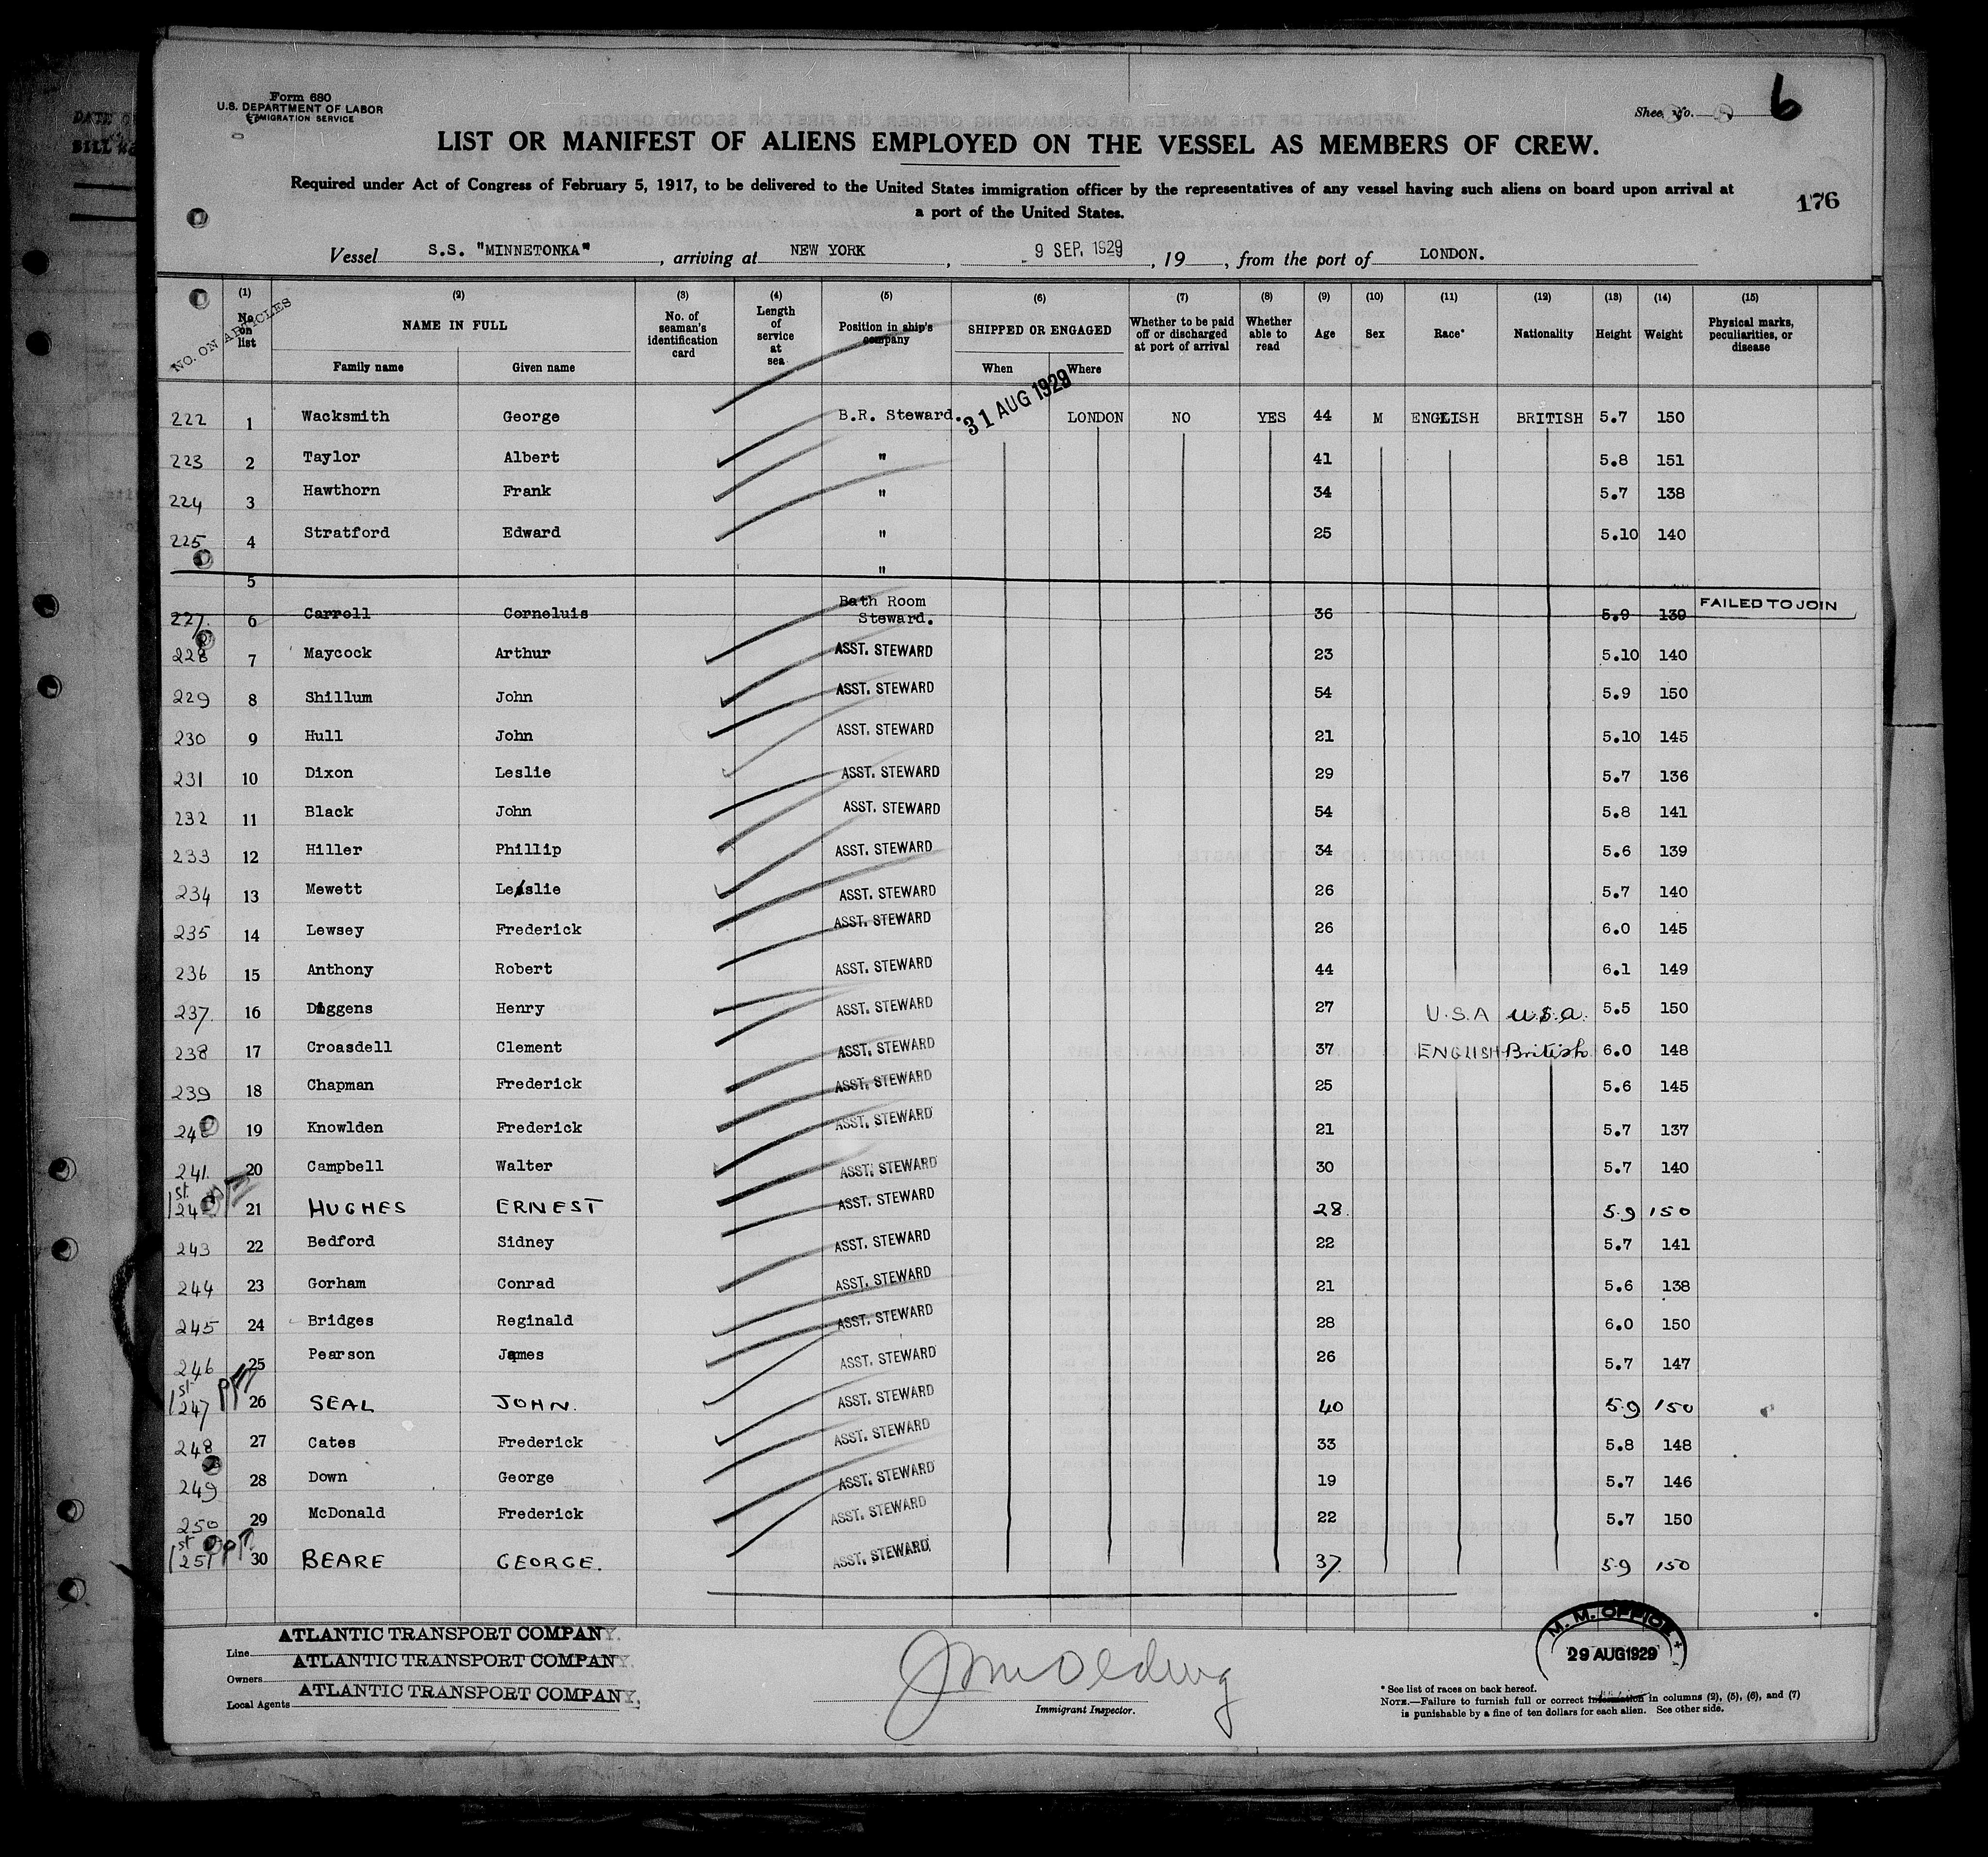 Form 680
U.S. DEPARTMENT OF LABOR
IMMIGRATION SERVICE
Sheet No. 6
LIST OR MANIFEST OF ALIENS EMPLOYED ON THE VESSEL AS MEMBERS OF CREW.
Required under Act of Congress of February 5, 1917, to be delivered to the United States immigration officer by the representatives of any vessel having such aliens on board upon arrival at
a port of the United States.
176
Vessel S.S. "MINNETONKA", arriving at NEW YORK, 9 SEP. 1929, 19 , from the port of LONDON.
NO. ON ARTICLES (1) No. on list (2) NAME IN FULL Family name Given name (3) No. of seaman's identification card (4) Length of service at sea (5) Position in ship's company (6) SHIPPED OR ENGAGED When Where (7) Whether to be paid off or discharged at port of arrival (8) Whether able to read (9) Age (10) Sex (11) Race* (12) Nationality (13) Height (14) Weight (15) Physical marks, peculiarities, or disease
222 1 Wacksmith George B.R. Steward. 31 AUG 1929 LONDON NO YES 44 M ENGLISH BRITISH 5.7 150
223 2 Taylor Albert " 41 5.8 151
224 3 Hawthorn Frank " 34 5.7 138
225 4 Stratford Edward " 25 5.10 140
5 "
227. 6 Carroll Corneluis Bath Room Steward. 36 5.9 139 FAILED TO JOIN
228 7 Maycock Arthur ASST. STEWARD 23 5.10 140
229 8 Shillum John ASST. STEWARD 54 5.9 150
230 9 Hull John ASST. STEWARD 21 5.10 145
231 10 Dixon Leslie ASST. STEWARD 29 5.7 136
232 11 Black John ASST. STEWARD 54 5.8 141
233 12 Hiller Phillip ASST. STEWARD 34 5.6 139
234 13 Mewett Leslie ASST. STEWARD 26 5.7 140
235 14 Lewsey Frederick ASST. STEWARD 26 6.0 145
236 15 Anthony Robert ASST. STEWARD 44 6.1 149
237. 16 Diggens Henry ASST. STEWARD 27 U.S.A U.S.A. 5.5 150
238 17 Croasdell Clement ASST. STEWARD 37 ENGLISH British 6.0 148
239 18 Chapman Frederick ASST. STEWARD 25 5.6 145
19 Knowlden Frederick ASST. STEWARD 21 5.7 137
241. 20 Campbell Walter ASST. STEWARD 30 5.7 140
1st 21 HUGHES ERNEST ASST. STEWARD 28. 5.9 150
243 22 Bedford Sidney ASST. STEWARD 22 5.7 141
244 23 Gorham Conrad ASST. STEWARD 21 5.6 138
245 24 Bridges Reginald ASST. STEWARD 28 6.0 150
246 25 Pearson James ASST. STEWARD 26 5.7 147
1st 247 26 SEAL JOHN. ASST. STEWARD 40 5.9 150
248 27 Cates Frederick ASST. STEWARD 33 5.8 148
249 28 Down George ASST. STEWARD 19 5.7 146
250 29 McDonald Frederick ASST. STEWARD 22 5.7 150
1st 251 30 BEARE GEORGE. ASST. STEWARD. 37. 5.9 150
Line ATLANTIC TRANSPORT COMPANY.
Owners ATLANTIC TRANSPORT COMPANY.
Local Agents ATLANTIC TRANSPORT COMPANY.
Immigrant Inspector.
M. M. OFFICE
29 AUG 1929
* See list of races on back hereof.
NOTE.—Failure to furnish full or correct information in columns (2), (5), (6), and (7)
is punishable by a fine of ten dollars for each alien. See other side.